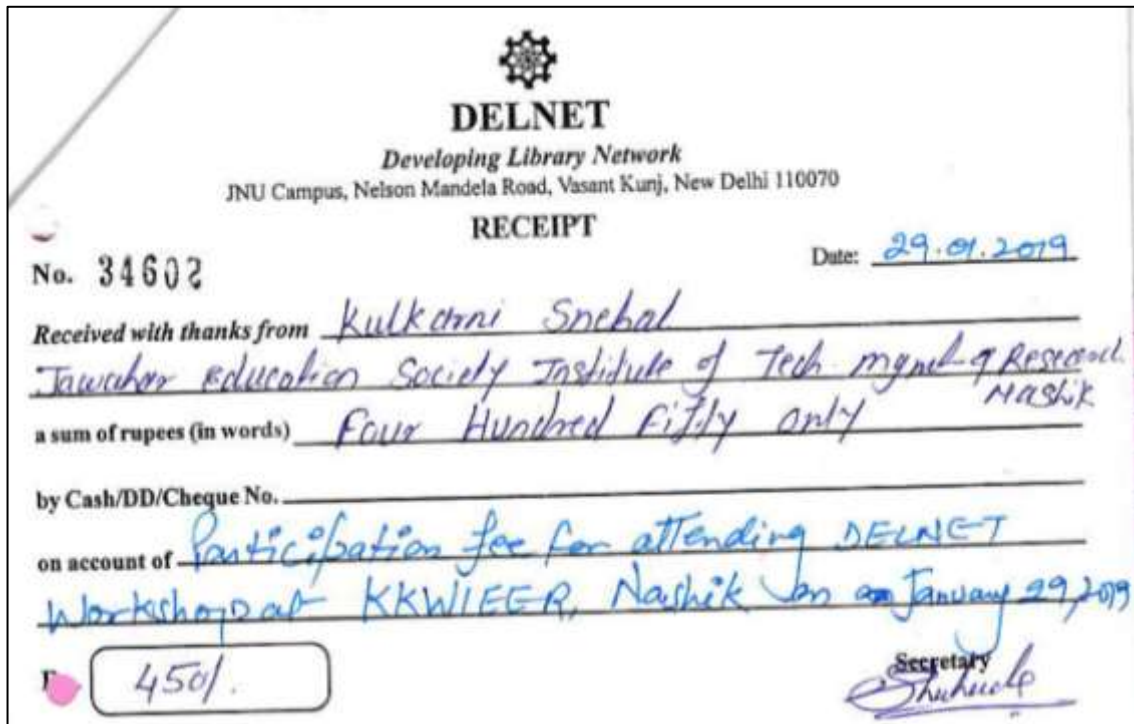 DELNET
Developing Library Network
JNU Campus, Nelson Mandela Road, Vasant Kunj, New Delhi 110070
RECEIPT
No. 34602
Date: 29.01.2019
Received with thanks from Kulkarni Snehal
Jawahar Education Society Institute of Tech mgmt & Research
Nashik
a sum of rupees (in words) Four Hundred Fifty only
by Cash/DD/Cheque No.
on account of Participation fee for attending DELNET
Workshop at KKWIEER, Nashik on January 29, 2019
450/.
Secretary